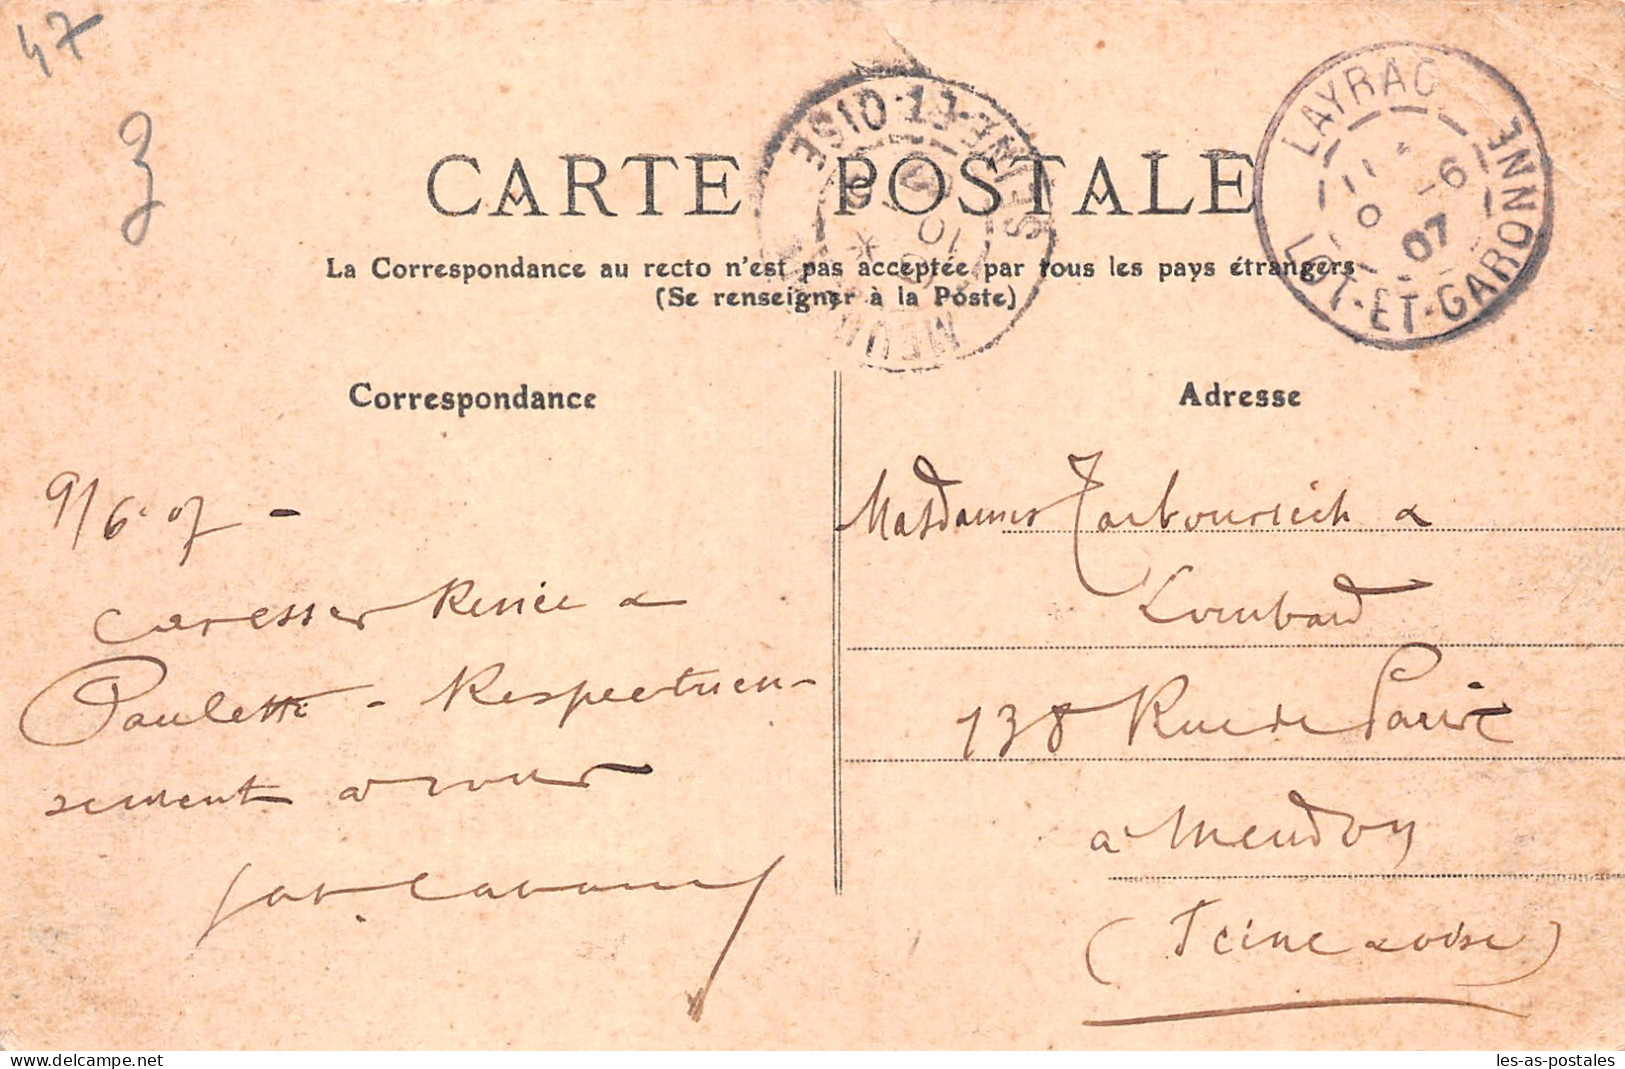 47
3
CARTE POSTALE
La Correspondance au recto n'est pas acceptée par tous les pays étrangers
(Se renseigner à la Poste)
SEINE-ET-OISE
LAYRAC
11
10 -6
07
LOT-ET-GARONNE
Correspondance
Adresse
9/6-07 -
Caresses Renée &
Paulette - Respectueu-
sement à vous
Mesdames Tarbouriech &
Lombard
138 Rue de Paris
à Meudon
(Seine & Oise)
les-as-postales